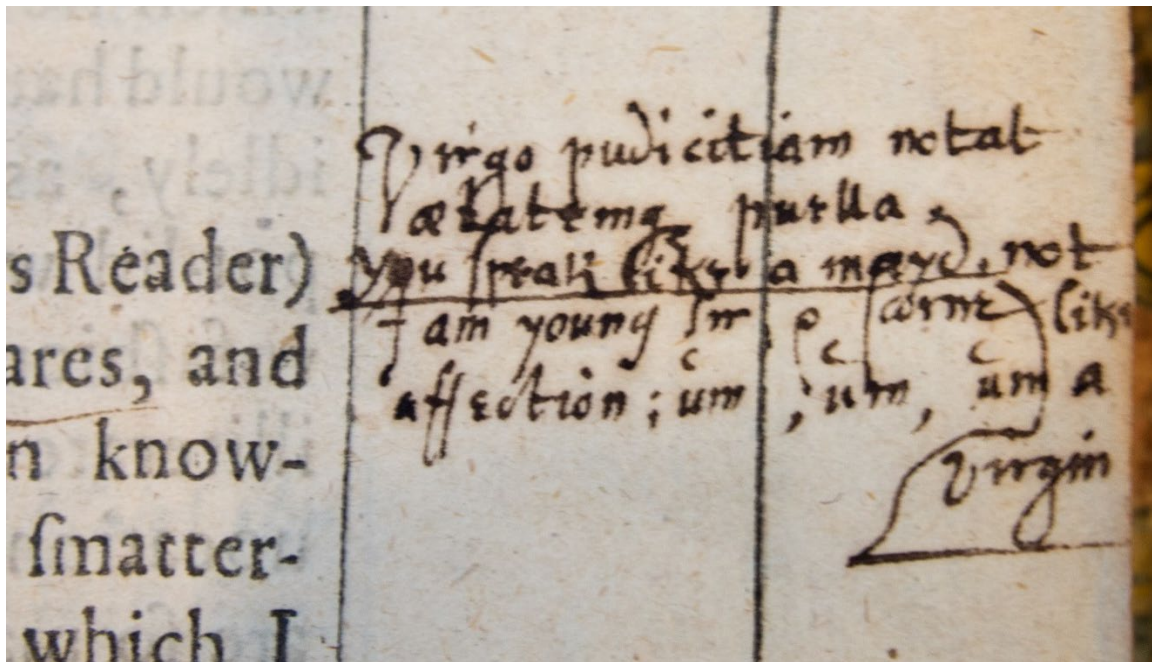 s Reader)
ares, and
n know-
ſmatter-
which I
Virgo pudicitiam notat
ætatemq puella.
you ſpeak like a mayd, not
I am young Sir, & ſcorne like
affection; um, um, um a
Virgin